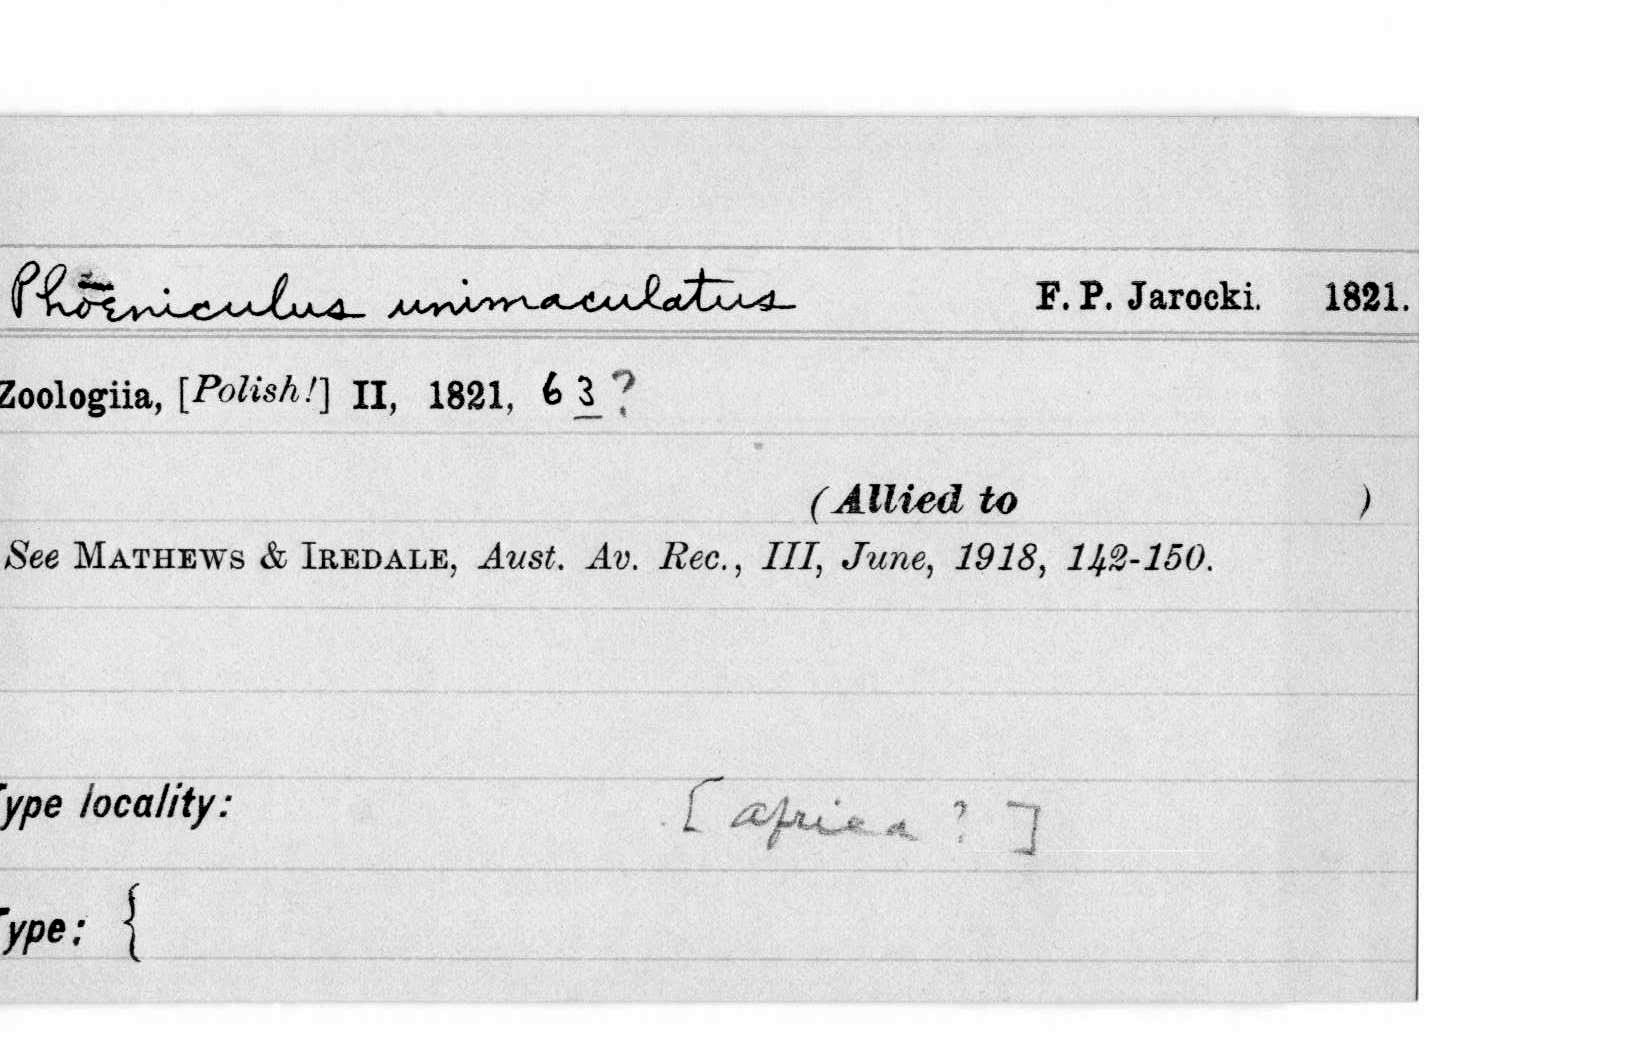 Phoeniculus unimaculatus F. P. Jarocki. 1821.
Zoologiia, [Polish!] II, 1821, 63?
(Allied to )
See MATHEWS & IREDALE, Aust. Av. Rec., III, June, 1918, 142-150.
Type locality: [Africa ?]
Type: {